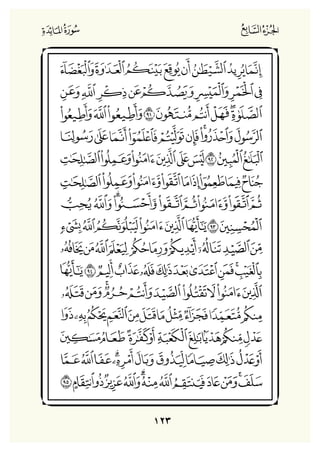 سُورَةُ المَائِدَةِ
الجُزْءُ السَّابِعُ
إِنَّمَا يُرِيدُ الشَّيْطَٰنُ أَن يُوقِعَ بَيْنَكُمُ الْعَدَٰوَةَ وَالْبَغْضَآءَ
فِى الْخَمْرِ وَالْمَيْسِرِ وَيَصُدَّكُمْ عَن ذِكْرِ اللَّهِ وَعَنِ
الصَّلَوٰةِ ۖ فَهَلْ أَنتُم مُّنتَهُونَ ٩١ وَأَطِيعُوا اللَّهَ وَأَطِيعُوا
الرَّسُولَ وَاحْذَرُوا ۚ فَإِن تَوَلَّيْتُمْ فَاعْلَمُوا أَنَّمَا عَلَىٰ رَسُولِنَا
الْبَلَٰغُ الْمُبِينُ ٩٢ لَيْسَ عَلَى الَّذِينَ ءَامَنُوا وَعَمِلُوا الصَّٰلِحَٰتِ
جُنَاحٌ فِيمَا طَعِمُوا إِذَا مَا اتَّقَوا وَّءَامَنُوا وَعَمِلُوا الصَّٰلِحَٰتِ
ثُمَّ اتَّقَوا وَّءَامَنُوا ثُمَّ اتَّقَوا وَّأَحْسَنُوا ۗ وَاللَّهُ يُحِبُّ
الْمُحْسِنِينَ ٩٣ يَٰٓأَيُّهَا الَّذِينَ ءَامَنُوا لَيَبْلُوَنَّكُمُ اللَّهُ بِشَىْءٍ
مِّنَ الصَّيْدِ تَنَالُهُۥٓ أَيْدِيكُمْ وَرِمَاحُكُمْ لِيَعْلَمَ اللَّهُ مَن يَخَافُهُۥ
بِالْغَيْبِ ۚ فَمَنِ اعْتَدَىٰ بَعْدَ ذَٰلِكَ فَلَهُۥ عَذَابٌ أَلِيمٌ ٩٤ يَٰٓأَيُّهَا
الَّذِينَ ءَامَنُوا لَا تَقْتُلُوا الصَّيْدَ وَأَنتُمْ حُرُمٌ ۚ وَمَن قَتَلَهُۥ
مِنكُم مُّتَعَمِّدًا فَجَزَآءٌ مِّثْلُ مَا قَتَلَ مِنَ النَّعَمِ يَحْكُمُ بِهِۦ ذَوَا
عَدْلٍ مِّنكُمْ هَدْيًۢا بَٰلِغَ الْكَعْبَةِ أَوْ كَفَّٰرَةٌ طَعَامُ مَسَٰكِينَ
أَوْ عَدْلُ ذَٰلِكَ صِيَامًا لِّيَذُوقَ وَبَالَ أَمْرِهِۦ ۗ عَفَا اللَّهُ عَمَّا
سَلَفَ ۚ وَمَنْ عَادَ فَيَنتَقِمُ اللَّهُ مِنْهُ ۗ وَاللَّهُ عَزِيزٌ ذُو انتِقَامٍ ٩٥
١٢٣